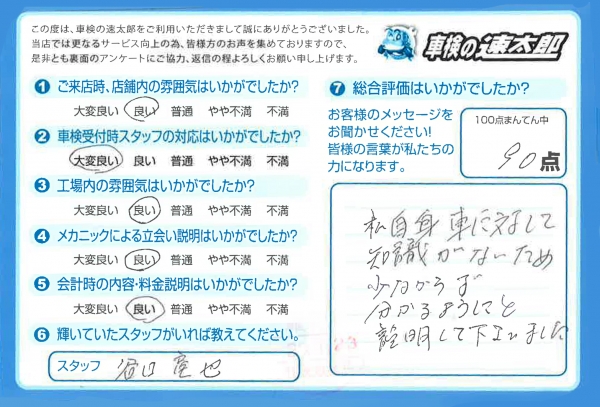 この度は、車検の速太郎をご利用いただきまして誠にありがとうございました。
当店では更なるサービス向上の為、皆様方のお声を集めておりますので、
是非とも裏面のアンケートにご協力、返信の程よろしくお願い申し上げます。
車検の速太郎
1 ご来店時、店舗内の雰囲気はいかがでしたか?
大変良い 良い 普通 やや不満 不満
2 車検受付時スタッフの対応はいかがでしたか?
大変良い 良い 普通 やや不満 不満
3 工場内の雰囲気はいかがでしたか?
大変良い 良い 普通 やや不満 不満
4 メカニックによる立会い説明はいかがでしたか?
大変良い 良い 普通 やや不満 不満
5 会計時の内容・料金説明はいかがでしたか?
大変良い 良い 普通 やや不満 不満
6 輝いていたスタッフがいれば教えてください。
スタッフ 谷口 也
7 総合評価はいかがでしたか?
お客様のメッセージを
お聞かせください!
皆様の言葉が私たちの
力になります。
100点まんてん中
90点
私自身車に対して
知識がないため
分かるようにと
説明して下さいました